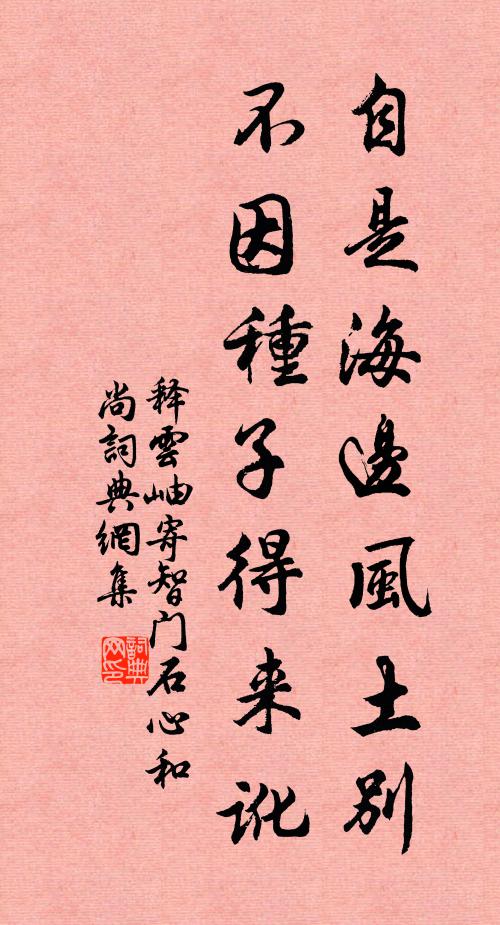 自是海邊風土別
不因種子得来訛
释雲岫寄智门石心和
尚詞典網集
詞典网印